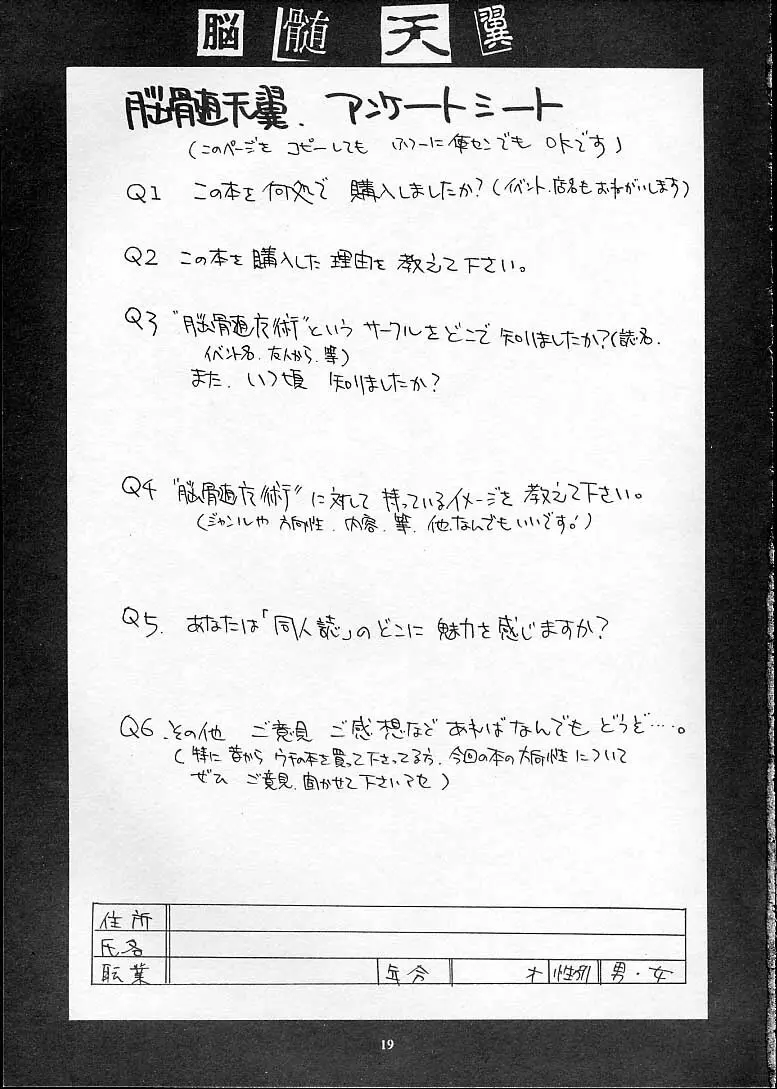 脳髄天翼
脳髄天翼、アンケートシート
(このページを コピーしても フツーに便センでも OKです)
Q1 この本を何処で 購入しましたか?(イベント、店名もおねがいします)
Q2 この本を 購入した 理由を 教えて下さい。
Q3 "脳髄魔術"という サークルをどこで 知りましたか?(誌名、
イベント名、友人から、等)
また、いつ頃 知りましたか?
Q4 "脳髄魔術"に対して 持っているイメージを 教えて下さい。
(ジャンルや 方向性、内容、等、他、なんでもいいです!)
Q5. あなたは「同人誌」のどこに 魅力を感じますか?
Q6.その他 ご意見 ご感想など あればなんでも どうぞ…。
(特に 昔から ウチの本を買って下さってる方、今回の本の方向性について
ぜひ ご意見、聞かせて下さいませ)
住所
氏名
職業 年令 才 性別 男・女
19